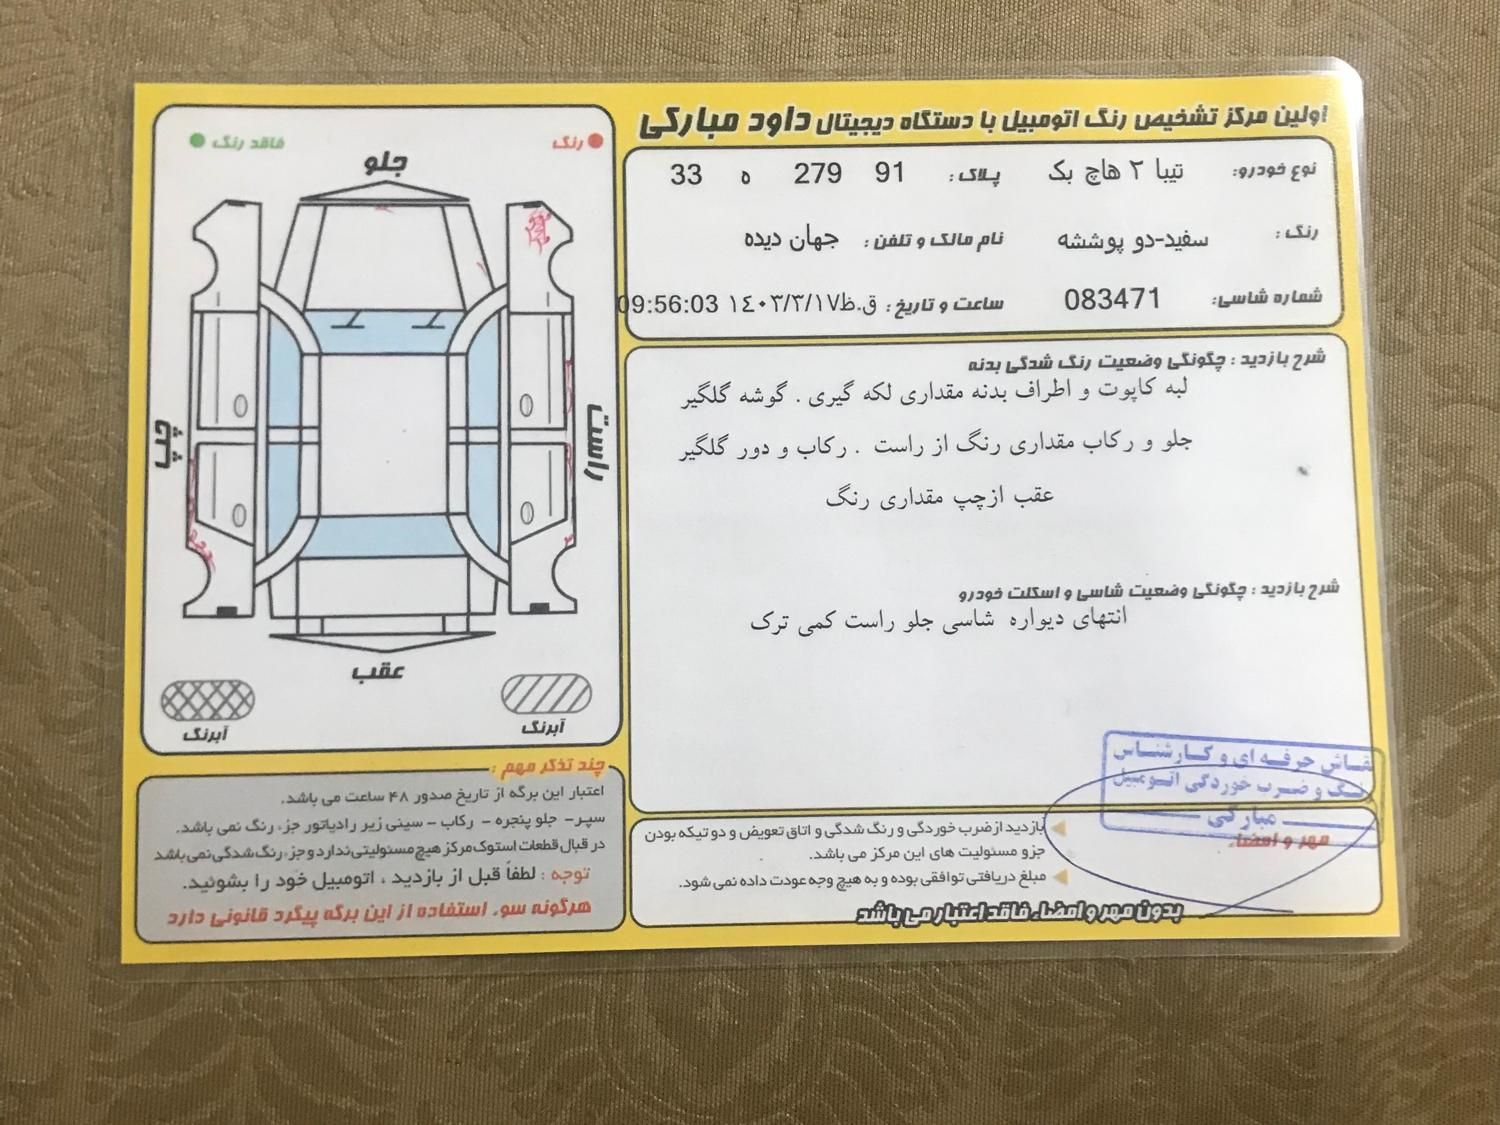 اولین مرکز تشخیص رنگ اتومبیل با دستگاه دیجیتال داود مبارکی
نوع خودرو: تیبا ۲ هاچ بک پلاک: 91 279 ه 33
رنگ: سفید-دو پوششه نام مالک و تلفن: جهان دیده
شماره شاسی: 083471 ساعت و تاریخ: ق.ظ ۱٤۰۳/۳/۱۷ 09:56:03
شرح بازدید : چگونگی وضعیت رنگ شدگی بدنه
لبه کاپوت و اطراف بدنه مقداری لکه گیری . گوشه گلگیر
جلو و رکاب مقداری رنگ از راست . رکاب و دور گلگیر
عقب ازچپ مقداری رنگ
شرح بازدید : چگونگی وضعیت شاسی و اسکلت خودرو
انتهای دیواره شاسی جلو راست کمی ترک
نقاش حرفه ای و کارشناس
رنگ و ضرب خوردگی اتومبیل
مبارکی
مهر و امضاء
بازدید از ضرب خوردگی و رنگ شدگی و اتاق تعویض و دو تیکه بودن
جزو مسئولیت های این مرکز می باشد.
مبلغ دریافتی توافقی بوده و به هیچ وجه عودت داده نمی شود.
بدون مهر و امضاء فاقد اعتبار می باشد
رنگ
فاقد رنگ
جلو
راست
چپ
عقب
آبرنگ
آبرنگ
چند تذکر مهم :
اعتبار این برگه از تاریخ صدور ۴۸ ساعت می باشد.
سپر- جلو پنجره - رکاب - سینی زیر رادیاتور جزء رنگ نمی باشد.
در قبال قطعات استوک مرکز هیچ مسئولیتی ندارد و جزء رنگ شدگی نمی باشد
توجه : لطفاً قبل از بازدید ، اتومبیل خود را بشوئید.
هرگونه سوء استفاده از این برگه پیگرد قانونی دارد